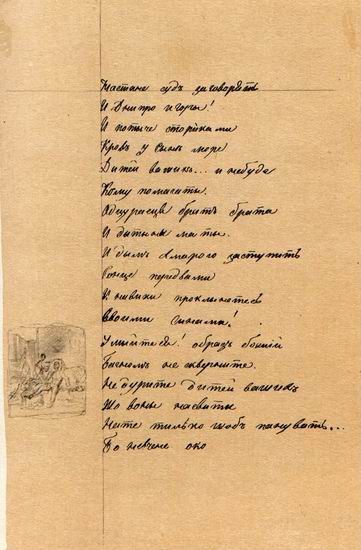 Настане судъ заговорять
И Днипро и горы!
И потыче сторіками
Кровъ у сыне море
Дитей вашихъ... и небуде
Кому помагаты.
Одцураецця братъ брата
И дытыны маты.
И дымъ хмарою заступыть
Сонце передъ вами
И на викы проклынетесь
Своими сынами!
Умыйтеся! образъ божій
Багномъ не сквернıте.
Не дурıте дıтей вашихъ
Що воны на свıты
На те тилько щобъ пануватъ...
Бо невчене око